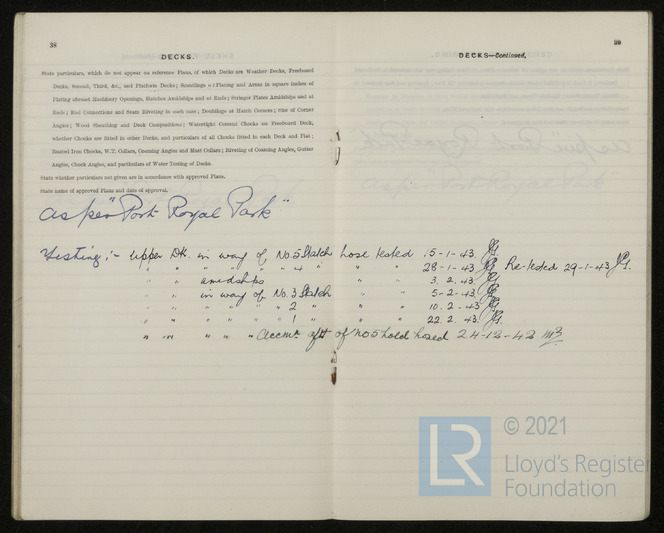 38
DECKS.
State particulars, which do not appear on reference Plans, of which Decks are Weather Decks, Freeboard
Decks, Second, Third, &c., and Platform Decks; Scantlings of Plating and Areas in square inches of
Plating abreast Machinery Openings, Hatches Amidships and at Ends; Stringer Plates Amidships and at
Ends; End Connections and Seam Riveting in each case; Doublings at Hatch Corners; Size of Corner
Angles; Wood Sheathing and Deck Compositions; Watertight Coment Chocks on Freeboard Deck,
whether Chocks are fitted in other Decks, and particulars of all Chocks fitted in each Deck and Flat;
Rusted Iron Chocks, W.T. Collars, Coaming Angles and Mast Collars; Riveting of Coaming Angles, Gutter
Angles, Chock Angles, and particulars of Water Testing of Decks.
State whether particulars not given are in accordance with approved Plans.
State name of approved Plans and date of approval.
as per "Port Royal Park"
Testing :- Upper Dk. in way of No. 5 Hatch hose tested 15-1-43. JG.
" " " " " " 4 " " " 28-1-43 JG Re-tested 29-1-43 JG.
" " amidships " " 3. 2. 43. JG
" " in way of No. 3 Hatch " " 5-2-43. JG
" " " " " " 2 " " " 10. 2. 43 JG
" " " " " " 1 " " " 22. 2. 43. JG.
" " " " " Accmn. aft of No 5 hold hosed 24-12-42
39
DECKS—Continued.
© 2021
LR
Lloyd's Register
Foundation